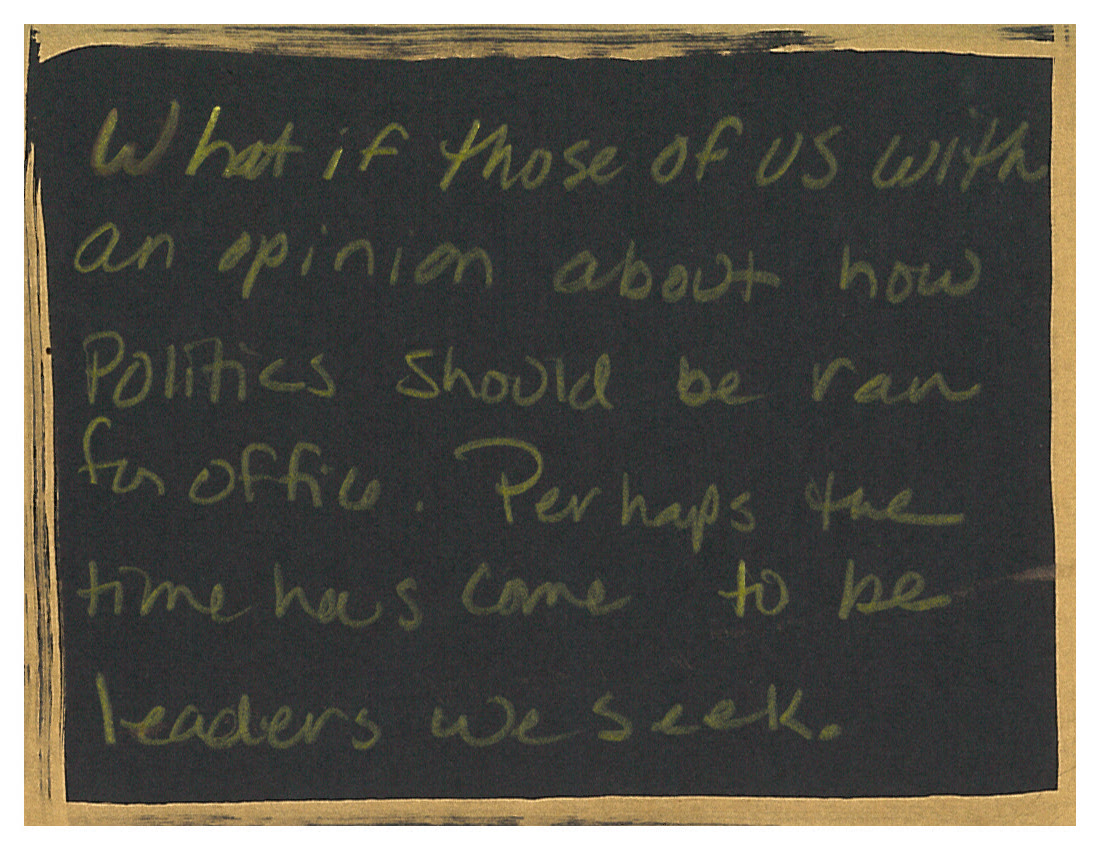 What if those of us with
an opinion about how
Politics should be ran
for office. Perhaps the
time has come to be
leaders we seek.